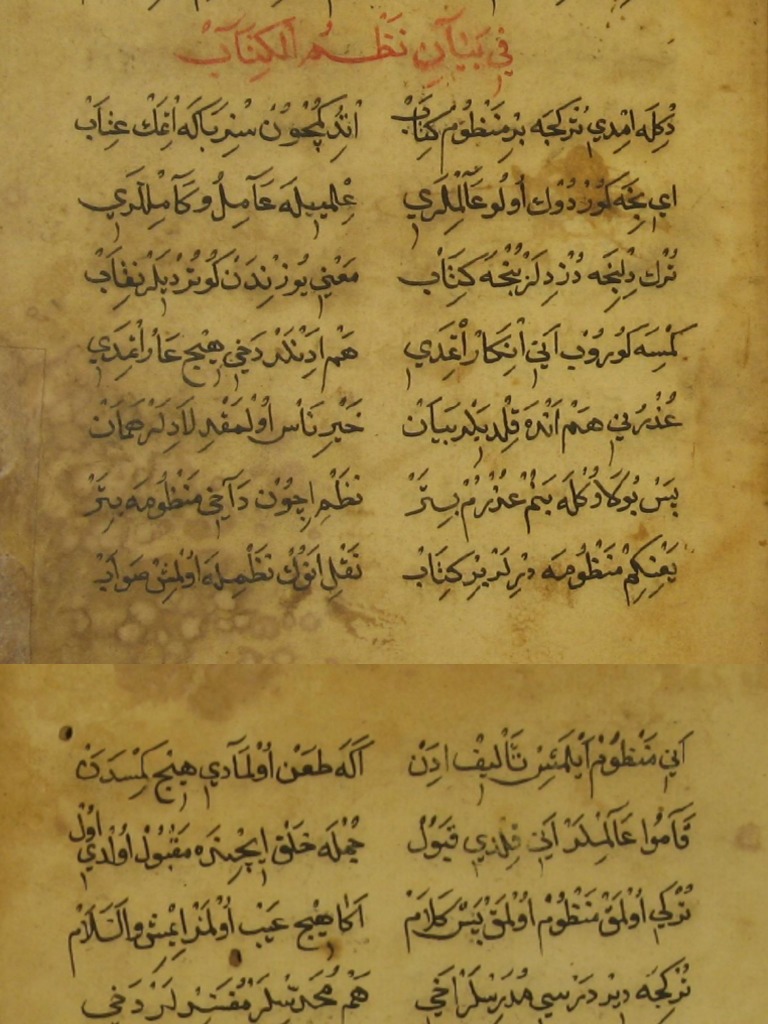 في بيان نظم الكتاب
دكله امدي تركجه بر منظوم كتاب اتدكمچون سنر بكا اتمك عتاب
اي نجه كوردوك اولو عالملري علميله عامل و كاملري
ترك دلنجه دزدلر بنجه كتاب معني يوزندن كوتردیلر نقاب
كمسه كوروب اني انكار اتمدي هم ادنلر دخي هيچ عار اتمدي
عذرني هم انده قلديلر بيان خير ناس اولمقديلاديلر همان
پس بوكا دكله بنم عذرم يتر نظم اچون داخي منظومه يتر
يعني كم منظومه ديرلر بر كتاب نقل انوك نظمله اولمش صواب
اني منظوم ايلمش تأليف ادن اكه طعن اولمادي هيچ كمسدن
قامو عالملر اني قلدي قبول جمله خلق ايچنده مقبول اولدي اول
تركي اولمق منظوم اولمق پس كلام اكا هيچ عيب اولمز ايمش والسلام
تركجه دير درسي مدرسلر اخي هم محدثلر مفتيلر دخي